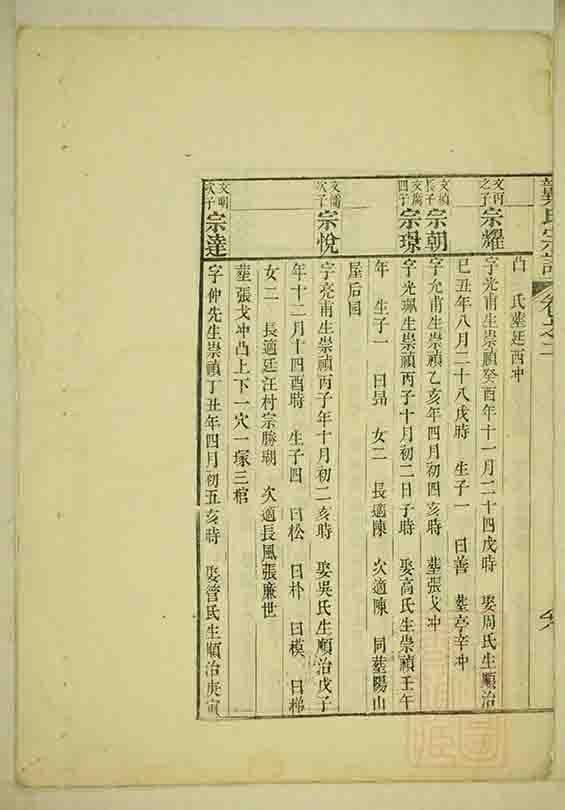 氏宗譜 卷之二
凸　氏塟廷西冲
文丙之子 宗耀 字光甫生崇禎癸酉年十一月二十四戌時　娶周氏生順治
己丑年八月二十八戌時　生子一　曰善　塟亭辛冲
文禎長子 宗朝 字允甫生崇禎乙亥年四月初四亥時　塟張戈冲
四子 宗璟 字光珮生崇禎丙子十月初二日子時　娶高氏生崇禎壬午
年　生子一　曰昻　女二　長適陳　次適陳　同塟陽山
屋后园
文儒次子 宗悅 字亮甫生崇禎丙子年十月初二亥時　娶吳氏生順治戊子
年十二月十四酉時　生子四　曰松　曰朴　曰模　曰梯
女二　長適廷汪村宗勝瑚　次適長風張廉世
塟張戈冲凸上下一穴一塚三棺
文明次子 宗達 字仲先生崇禎丁丑年四月初五亥時　娶管氏生順治庚寅